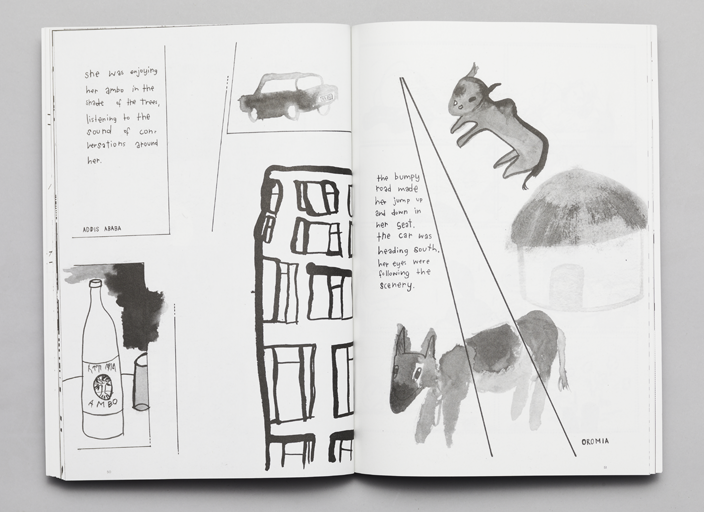 she was enjoying
her ambo in the
shade of the trees,
listening to the
sound of con-
versations around
her.
ADDIS ABABA
AMBO
the bumpy
road made
her jump up
and down in
her seat.
the car was
heading south,
her eyes were
following the
scenery.
OROMIA